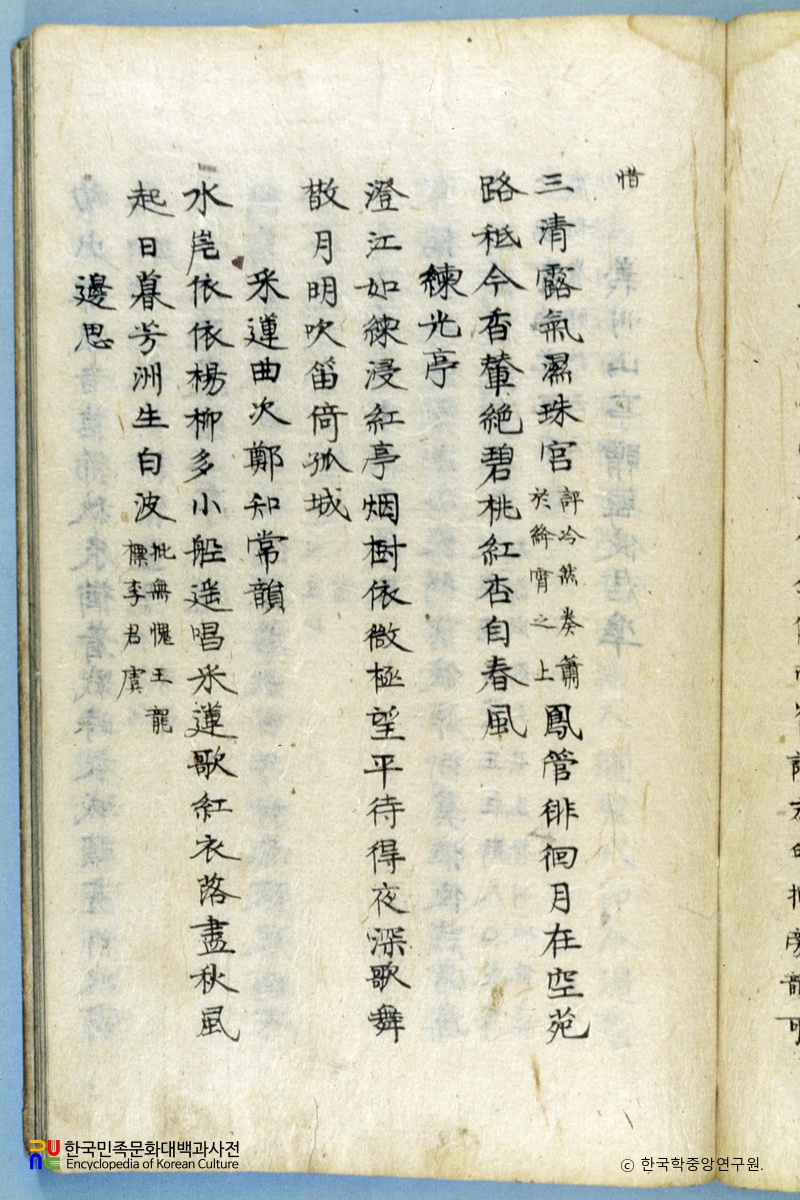 惜
三清露氣濕珠宮 評冷然奏簫於絳霄之上 鳳管徘徊月在空苑
路秪今香輦絶碧桃紅杏自春風
練光亭
澄江如練浸紅亭烟樹依微極望平待得夜深歌舞
散月明吹笛倚孤城
采蓮曲次鄭知常韻
水岸依依楊柳多小船遥唱采蓮歌紅衣落盡秋風
起日暮芳洲生白波 批無愧王龍標李君虞
邊思
한국민족문화대백과사전
Encyclopedia of Korean Culture
ⓒ 한국학중앙연구원.